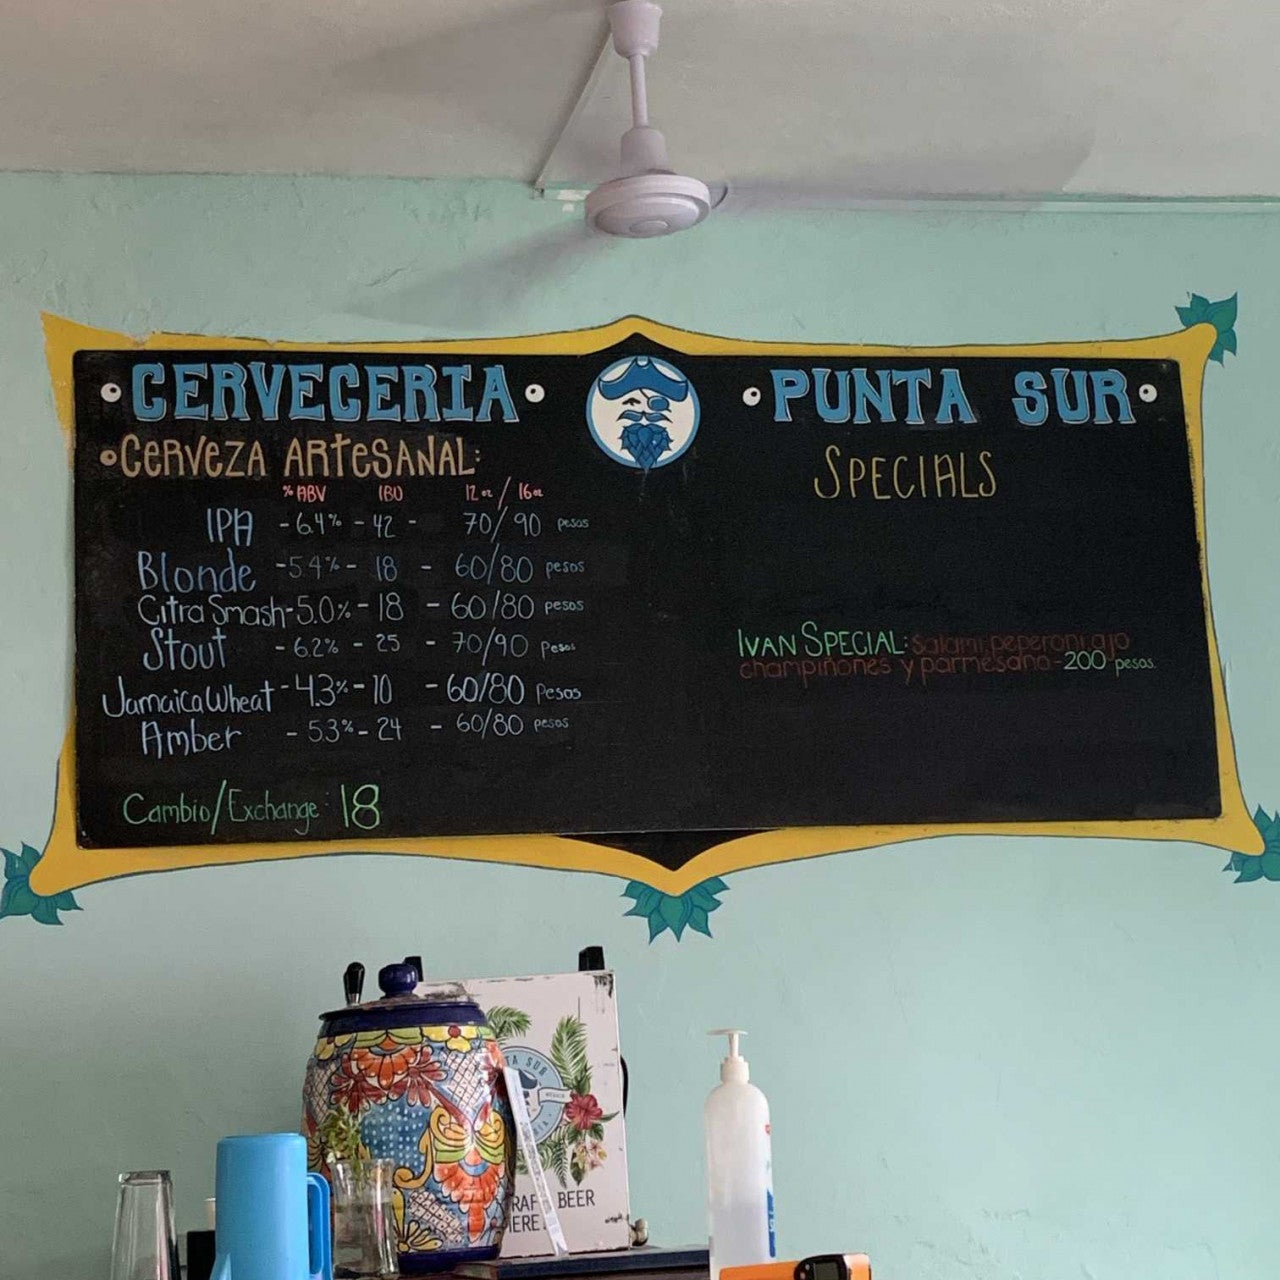 CERVECERIA
PUNTA SUR
CERVEZA ARTESANAL:
% ABV IBU 12 oz / 16 oz
IPA - 6.4% - 42 - 70/90 pesos
Blonde - 5.4% - 18 - 60/80 pesos
Citra Smash - 5.0% - 18 - 60/80 pesos
Stout - 6.2% - 25 - 70/90 Pesos
Jamaica Wheat - 4.3% - 10 - 60/80 Pesos
Amber - 5.3% - 24 - 60/80 pesos
Cambio/Exchange: 18
SPECIALS
IVAN SPECIAL: Salami, peperoni, ajo
champiñones y parmesano - 200 pesos.
TA SUR
RAF BEER
ERE